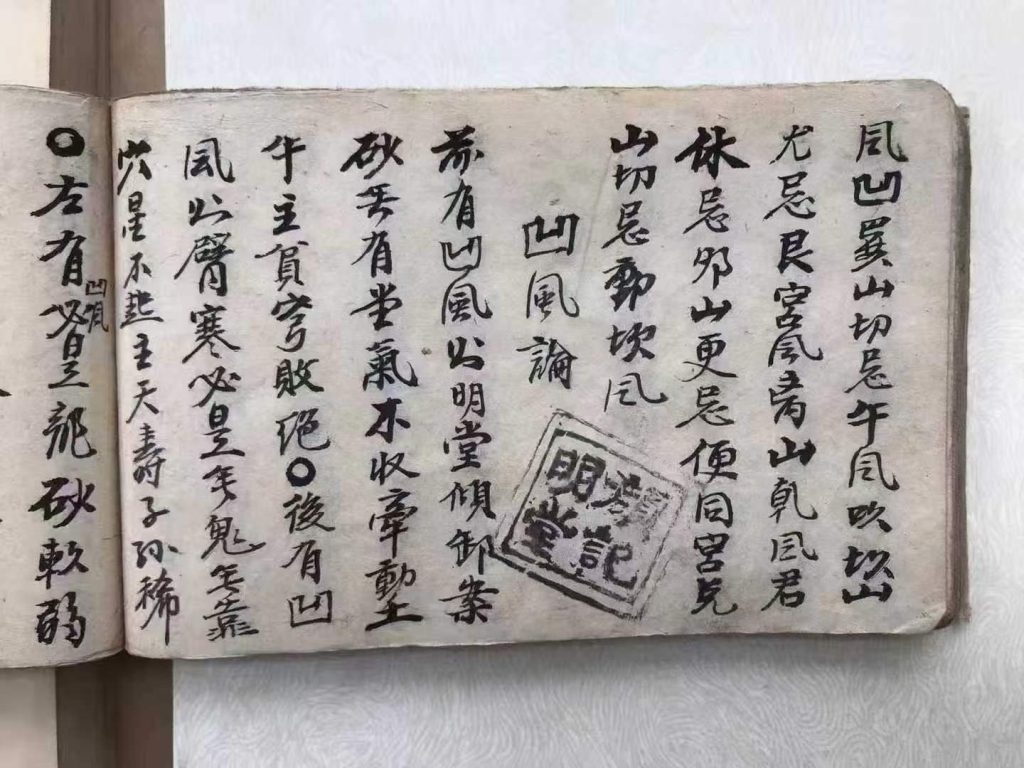 凨凹巽山切忌午凨吹坎山
尤忌艮宮風离山乾凨君
休忌卯山更忌便同宮兑
山切忌動坎凨
凹風論
前有凹風公明堂傾卸案
砂无有堂氣不收牽動土
牛主貧窮敗绝〇後有凹
風公臂寒必是无鬼无靠
穴星不起主夭壽子孫稀
〇左有凹凨必是龍砂軟弱
明堂
記